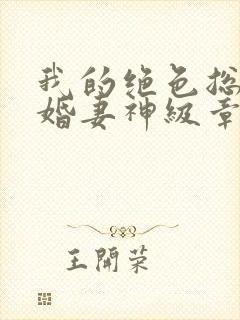 我的绝色总
婚妻神级章
王開荣